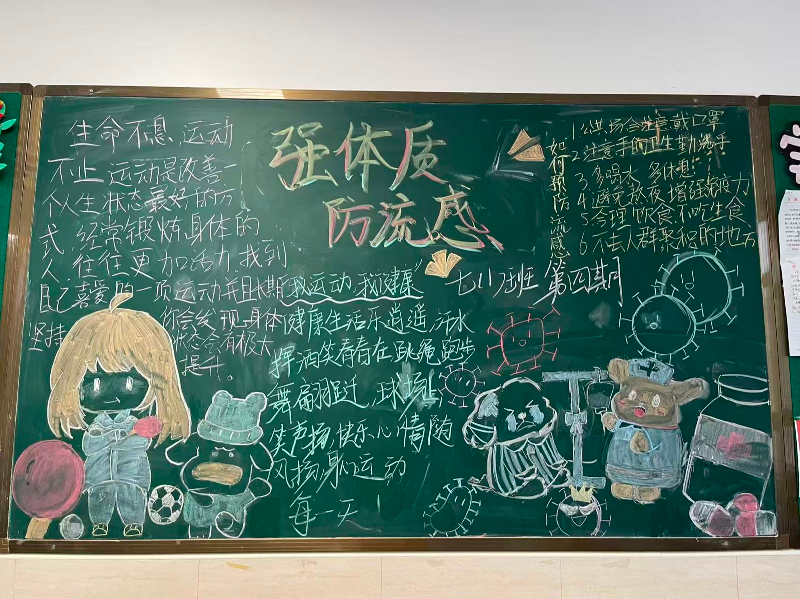 生命不息,运动
不止,运动是改善一
个人生状态最好的方
式,经常锻炼身体的
人,往往更加活力,找到
自己喜爱的一项运动并且长期
坚持
你会发现,身体
状态会有极大
提升。
强体质
防流感
"我运动,我健康"
健康生活乐逍遥,汗水
挥洒笑春春在跳绳跑步
舞翩跹,球场上
笑声扬,快乐心情随
风扬,歌运动
每一天!
七(1)班 第四期
如何预防流感?
1.公共场合注意戴口罩
2.注意手的卫生勤洗手
3.多喝水 多休息
4.避免熬夜 增强免疫力
5.合理饮食 不吃生食
6.不去人群聚积的地方